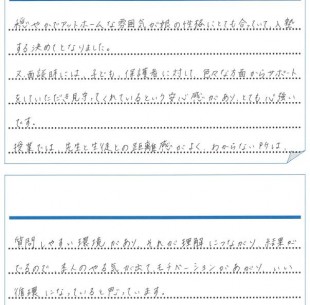 穏やかでアットホームな雰囲気が娘の性格にとても合っていて、入塾
する決めてとなりました。
又、面談時には、子ども、保護者に対して、色々な方面からサポート
をしていただき見守ってくれているという安心感があり、とても心強い
です。
授業では、先生と生徒との距離感がよく、わからない所は
質問しやすい環境があり、それが理解につながり、結果が
でるので、本人のやる気が出てモチベーションがあがり、いい
循環になっていると思っています。